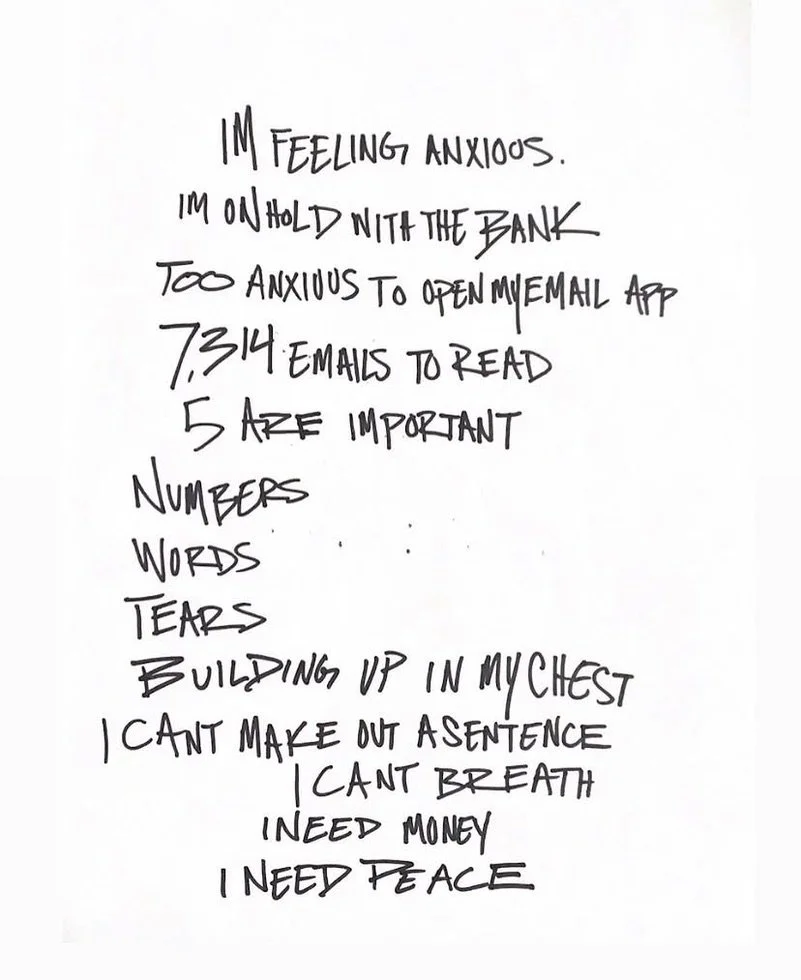 IM FEELING ANXIOUS.
IM ON HOLD WITH THE BANK
TOO ANXIOUS TO OPEN MY EMAIL APP
7,314 EMAILS TO READ
5 ARE IMPORTANT
NUMBERS
WORDS
TEARS
BUILDING UP IN MY CHEST
I CANT MAKE OUT A SENTENCE
I CANT BREATH
I NEED MONEY
I NEED PEACE